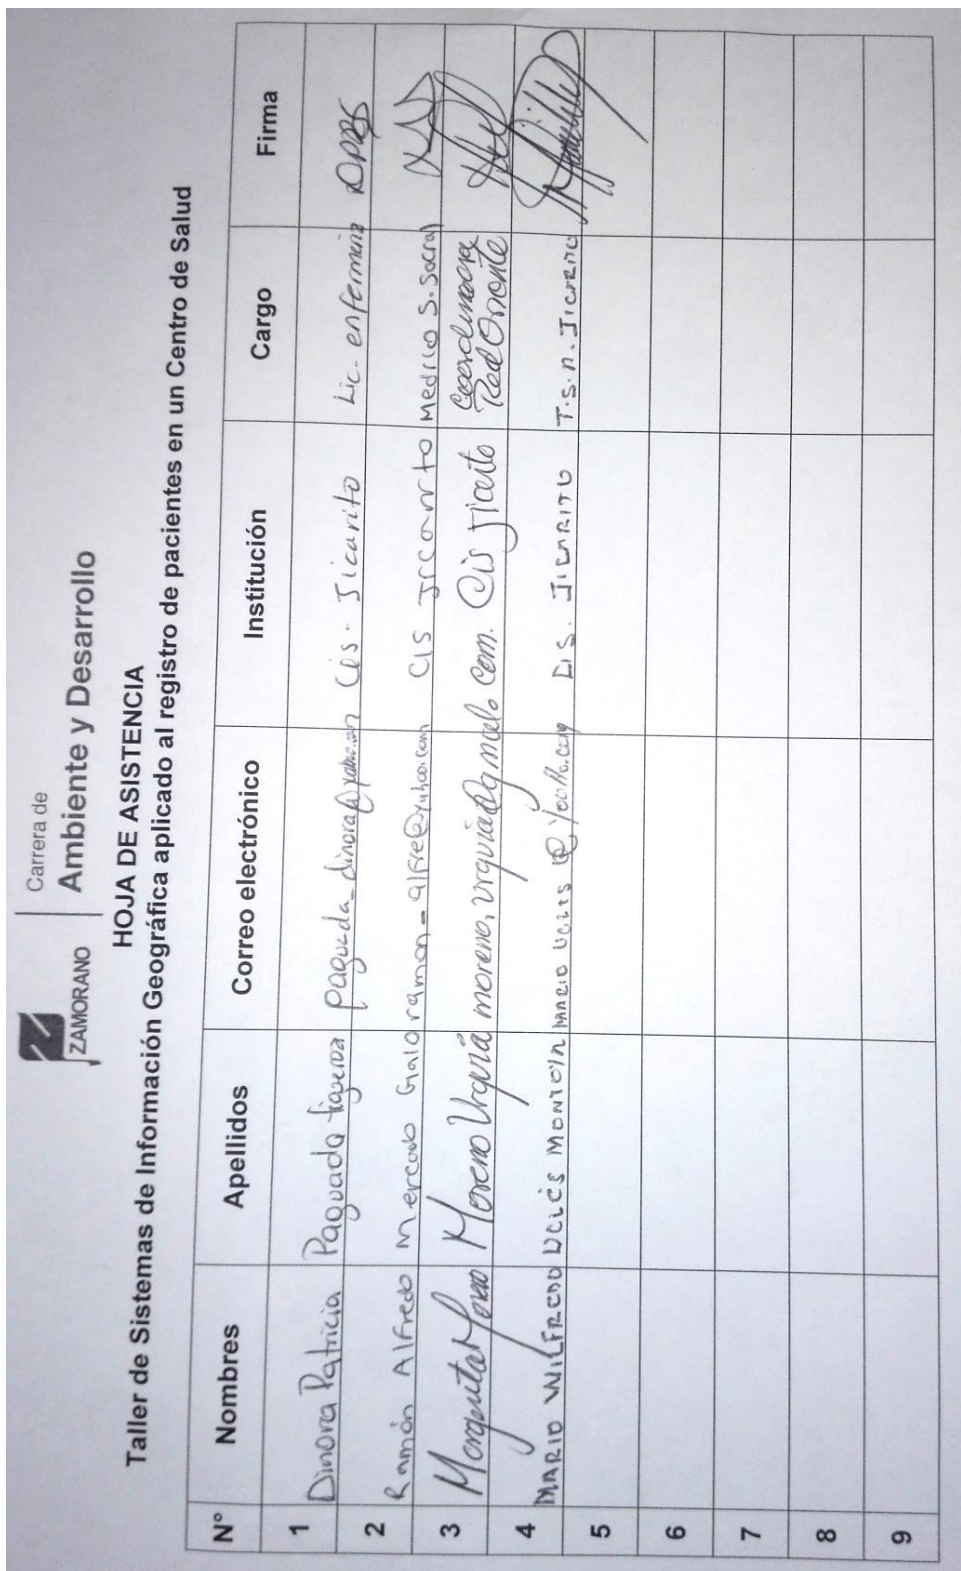 ZAMORANO
Carrera de
Ambiente y Desarrollo
HOJA DE ASISTENCIA
Taller de Sistemas de Información Geográfica aplicado al registro de pacientes en un Centro de Salud
N° Nombres Apellidos Correo electrónico Institución Cargo Firma
1 Dinora Patricia Paguada Figueroa paguada_dinora@yahoo.com Cis. Jicarito Lic. enfermeria
2 Ramón Alfredo Mercado Galo ramon_alfre@yahoo.com CIS Jicarito Medico S. Social
3 Margarita Moreno Moreno Urquía moreno.urquia@gmail.com. Cis Jicarito Coordinadora Red Oriente
4 MARIO WILFREDO @yahoo.com CIS. JICARITO T.S.N. JICARITO
5
6
7
8
9